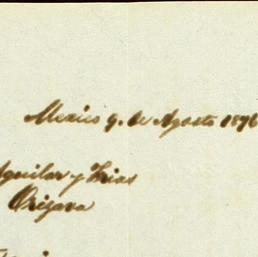 Mexico 9. de Agosto 1876
Aguilar y Frias
Orizava